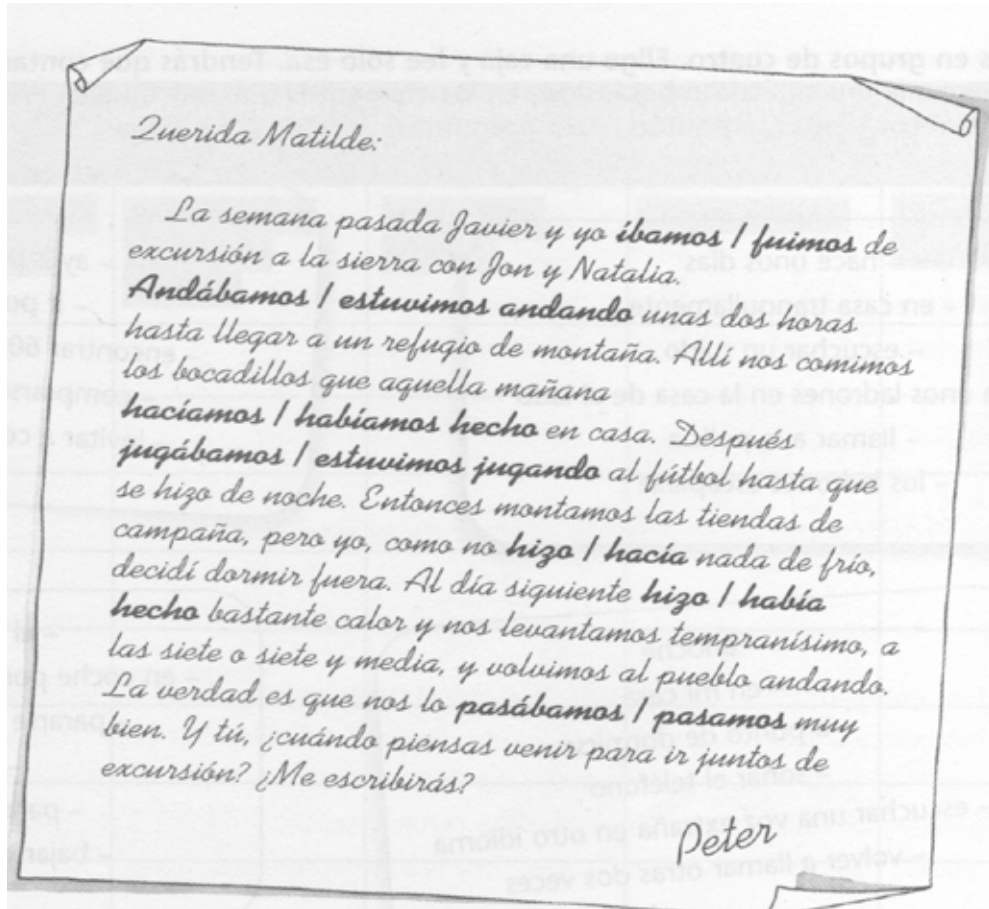 s en grupos de cuatro. Elige una caja y lee solo esa. Tendrás que contar
Querida Matilde:
La semana pasada Javier y yo íbamos / fuimos de
excursión a la sierra con Jon y Natalia.
Andábamos / estuvimos andando unas dos horas
hasta llegar a un refugio de montaña. Allí nos comimos
los bocadillos que aquella mañana
hacíamos / habíamos hecho en casa. Después
jugábamos / estuvimos jugando al fútbol hasta que
se hizo de noche. Entonces montamos las tiendas de
campaña, pero yo, como no hizo / hacía nada de frío,
decidí dormir fuera. Al día siguiente hizo / había
hecho bastante calor y nos levantamos tempranísimo, a
las siete o siete y media, y volvimos al pueblo andando.
La verdad es que nos lo pasábamos / pasamos muy
bien. Y tú, ¿cuándo piensas venir para ir juntos de
excursión? ¿Me escribirás?
Peter